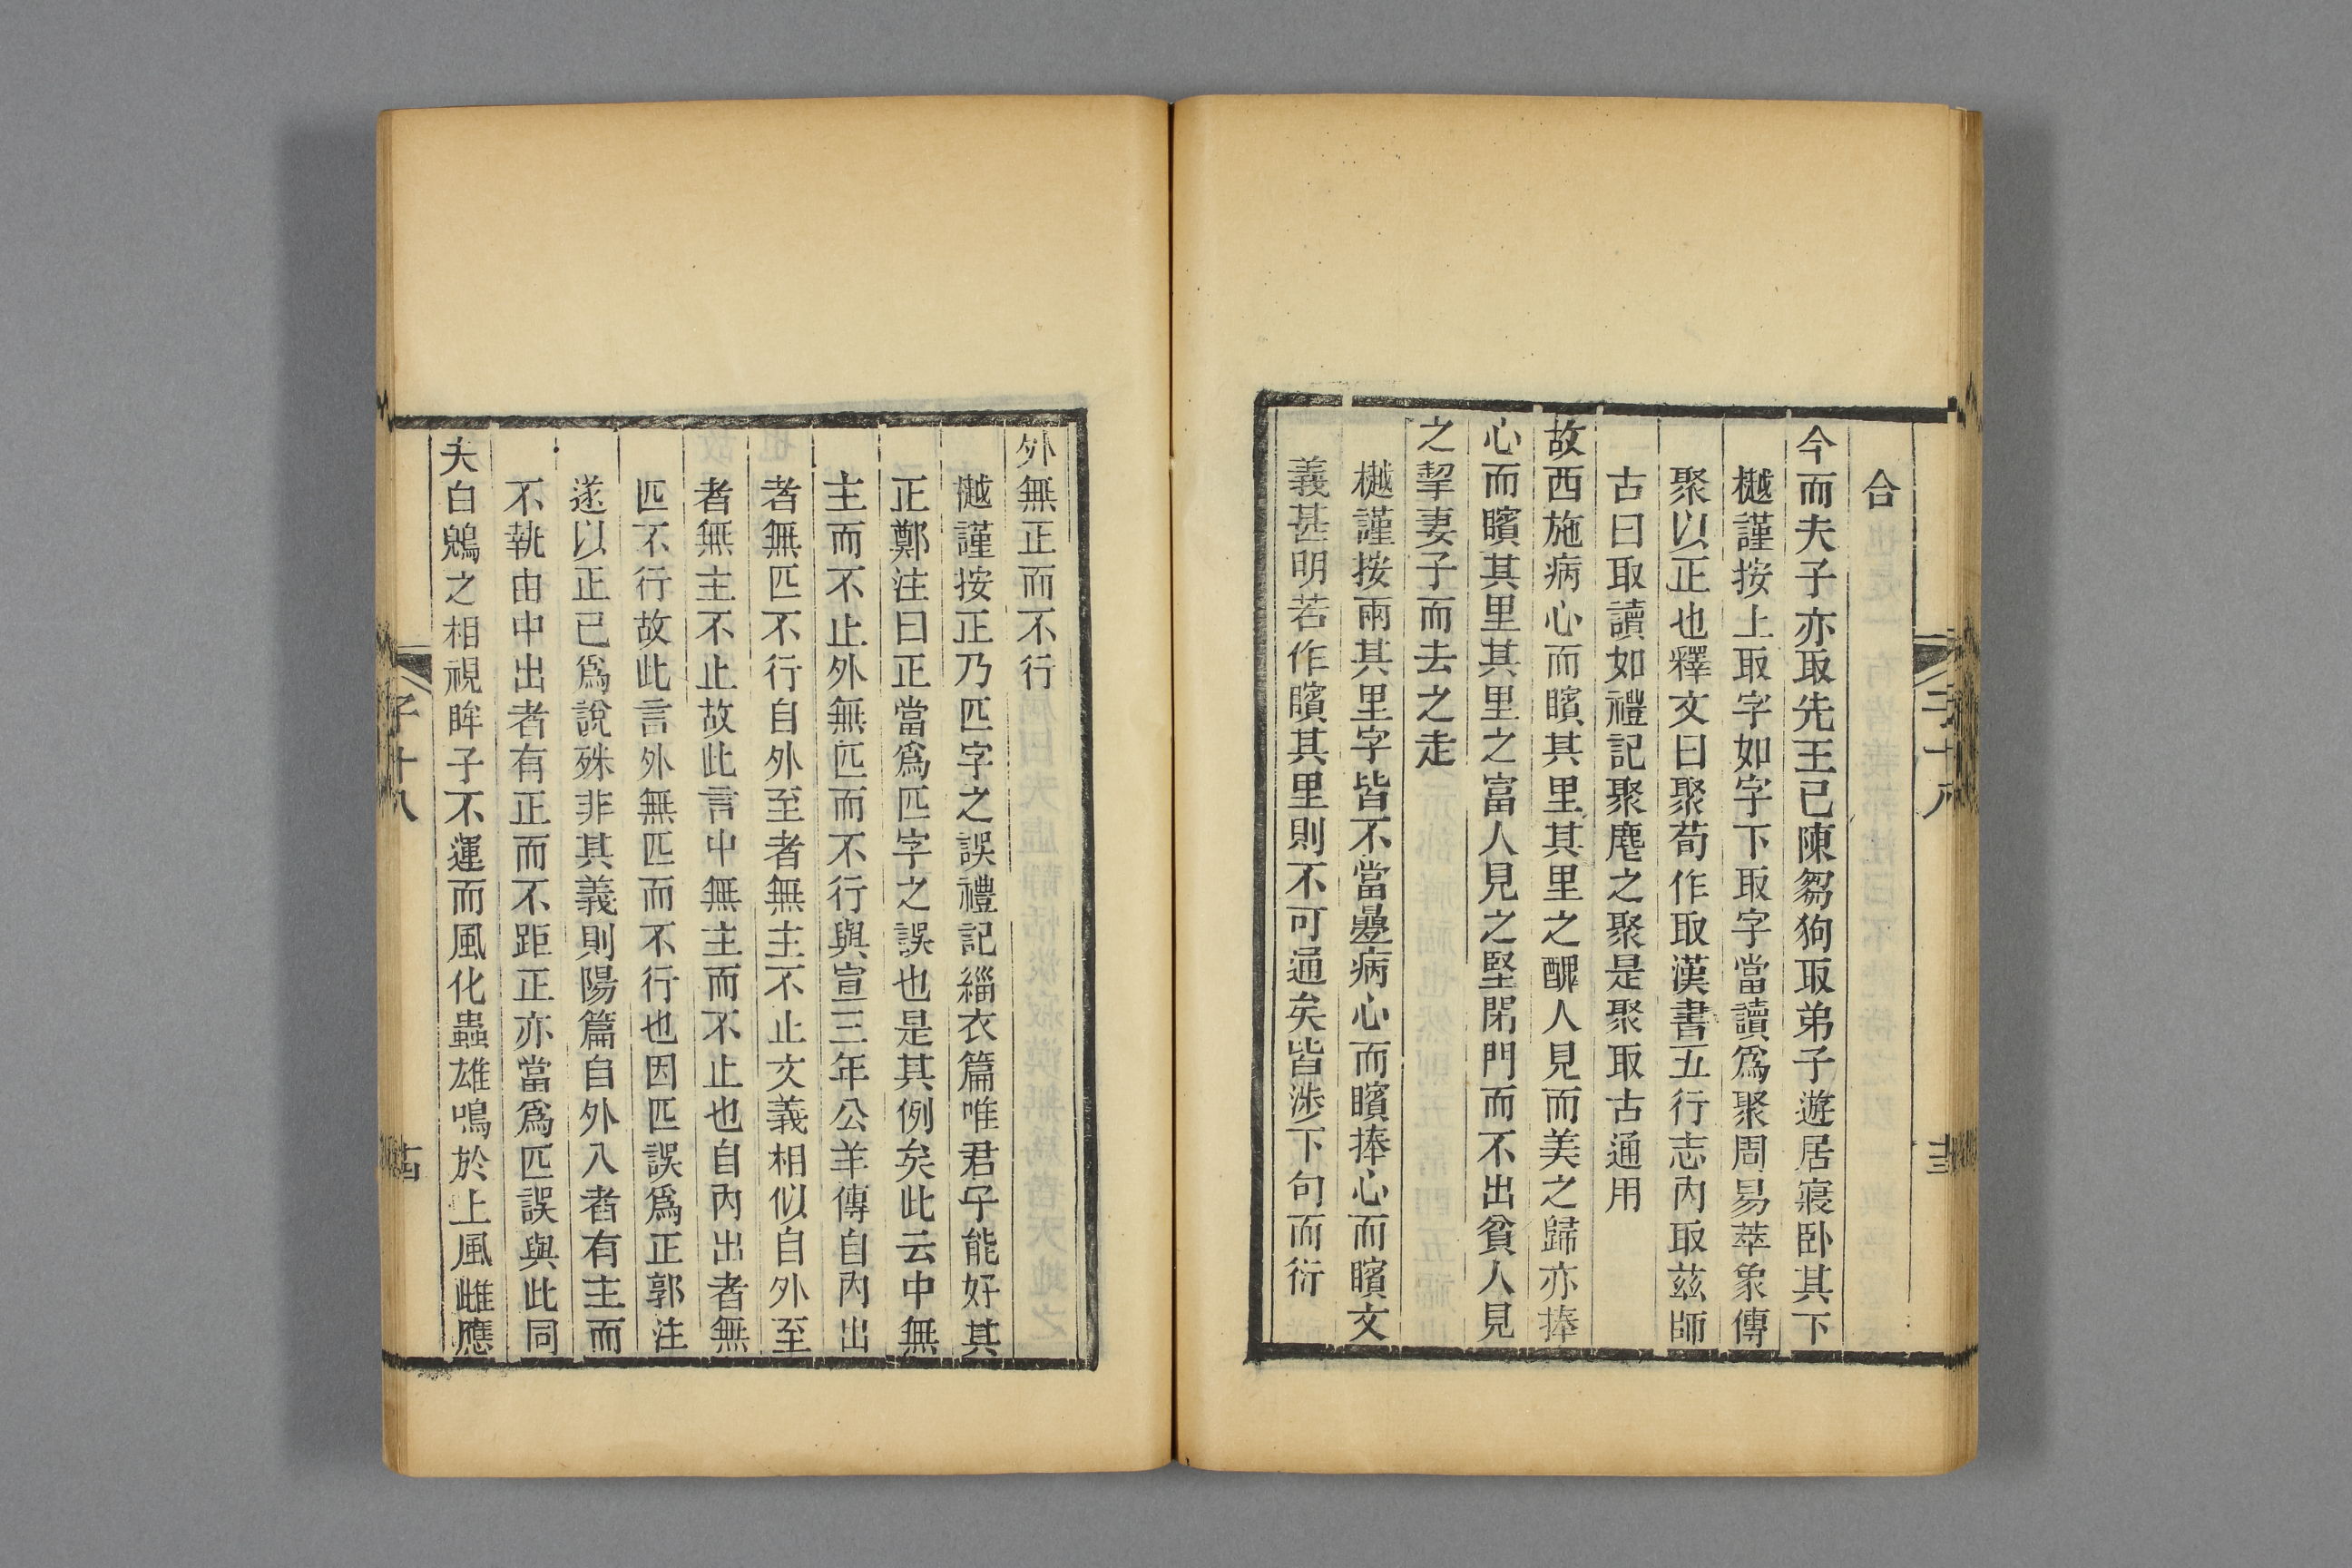 合
今而夫子亦取先王已陳芻狗取弟子遊居寢卧其下
樾謹按上取字如字下取字當讀爲聚周易萃象傳
聚以正也釋文曰聚荀作取漢書五行志内取茲師
古曰取讀如禮記聚麀之聚是聚取古通用
故西施病心而矉其里其里之醜人見而美之歸亦捧
心而矉其里其里之富人見之堅閉門而不出貧人見
之挈妻子而去之走
樾謹按兩其里字皆不當疊病心而矉捧心而矉文
義甚明若作矉其里則不可通矣皆涉下句而衍
外無正而不行
樾謹按正乃匹字之誤禮記緇衣篇唯君子能好其
正鄭注曰正當爲匹字之誤也是其例矣此云中無
主而不止外無匹而不行與宣三年公羊傳自内出
者無匹不行自外至者無主不止文義相似自外至
者無主不止故此言中無主而不止也自内出者無
匹不行故此言外無匹而不行也因匹誤爲正郭注
遂以正已爲說殊非其義則陽篇自外入者有主而
不執由中出者有正而不距正亦當爲匹誤與此同
夫白鶂之相視眸子不運而風化蟲雄鳴於上風雌應
子十八
古